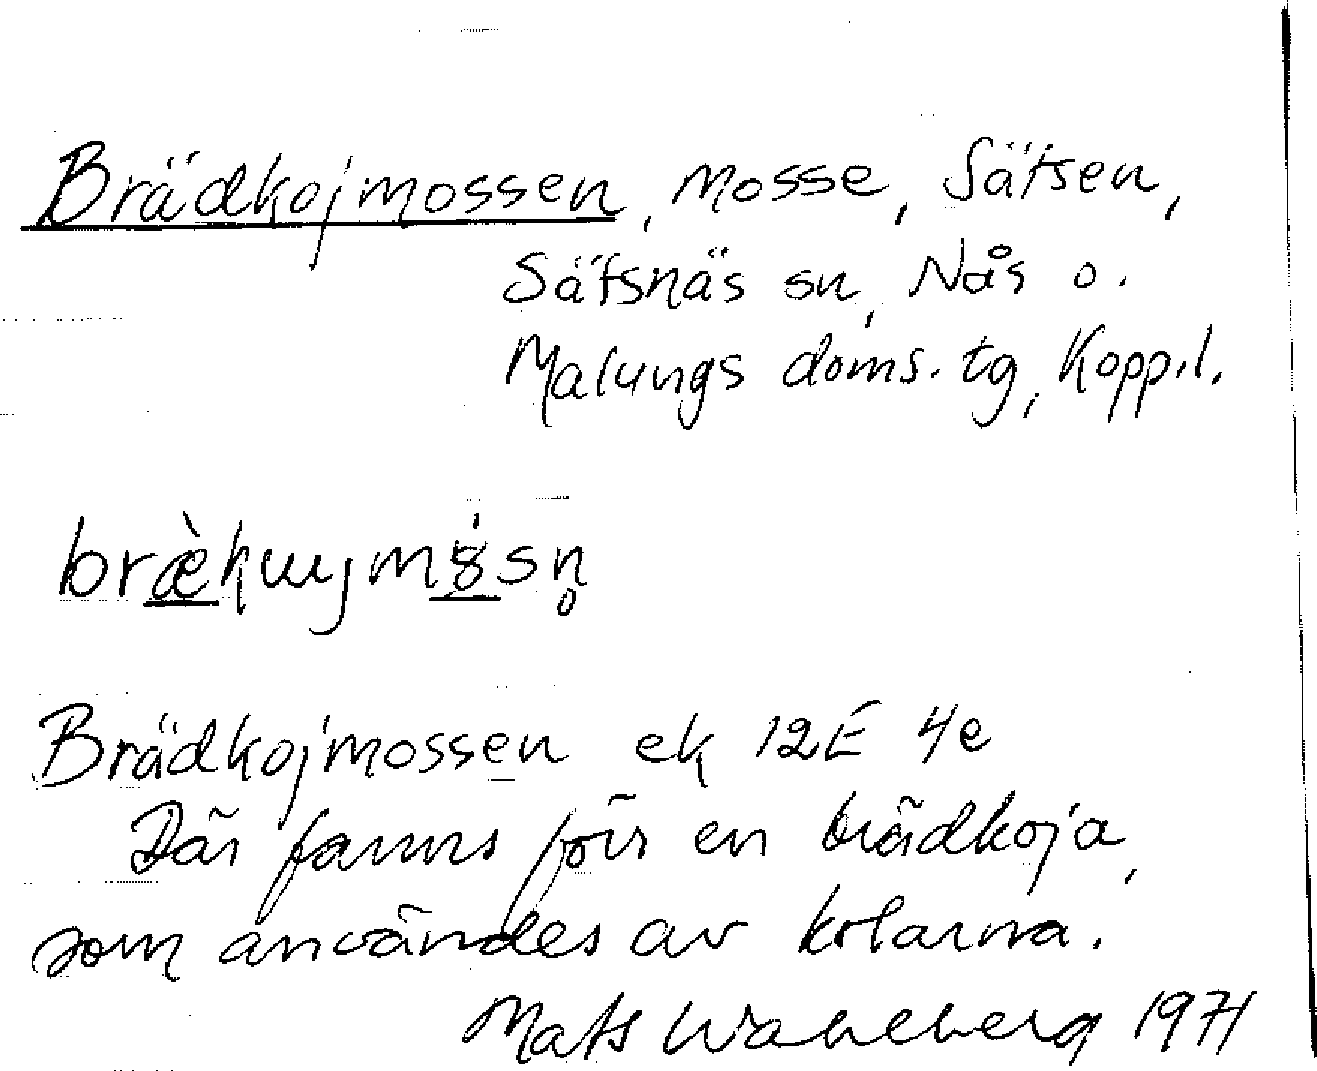 Brädkojmossen, mosse, Sätsen,
Sätsnäs sn, Nås o.
Malungs doms. tg, Kopp.l.
bræ̀kɯjmɵ̇sn̥
Brädkojmossen ek 12E 4e
Där fanns förr en brädkoja,
som användes av kolarna.
Mats Wahlberg 1971